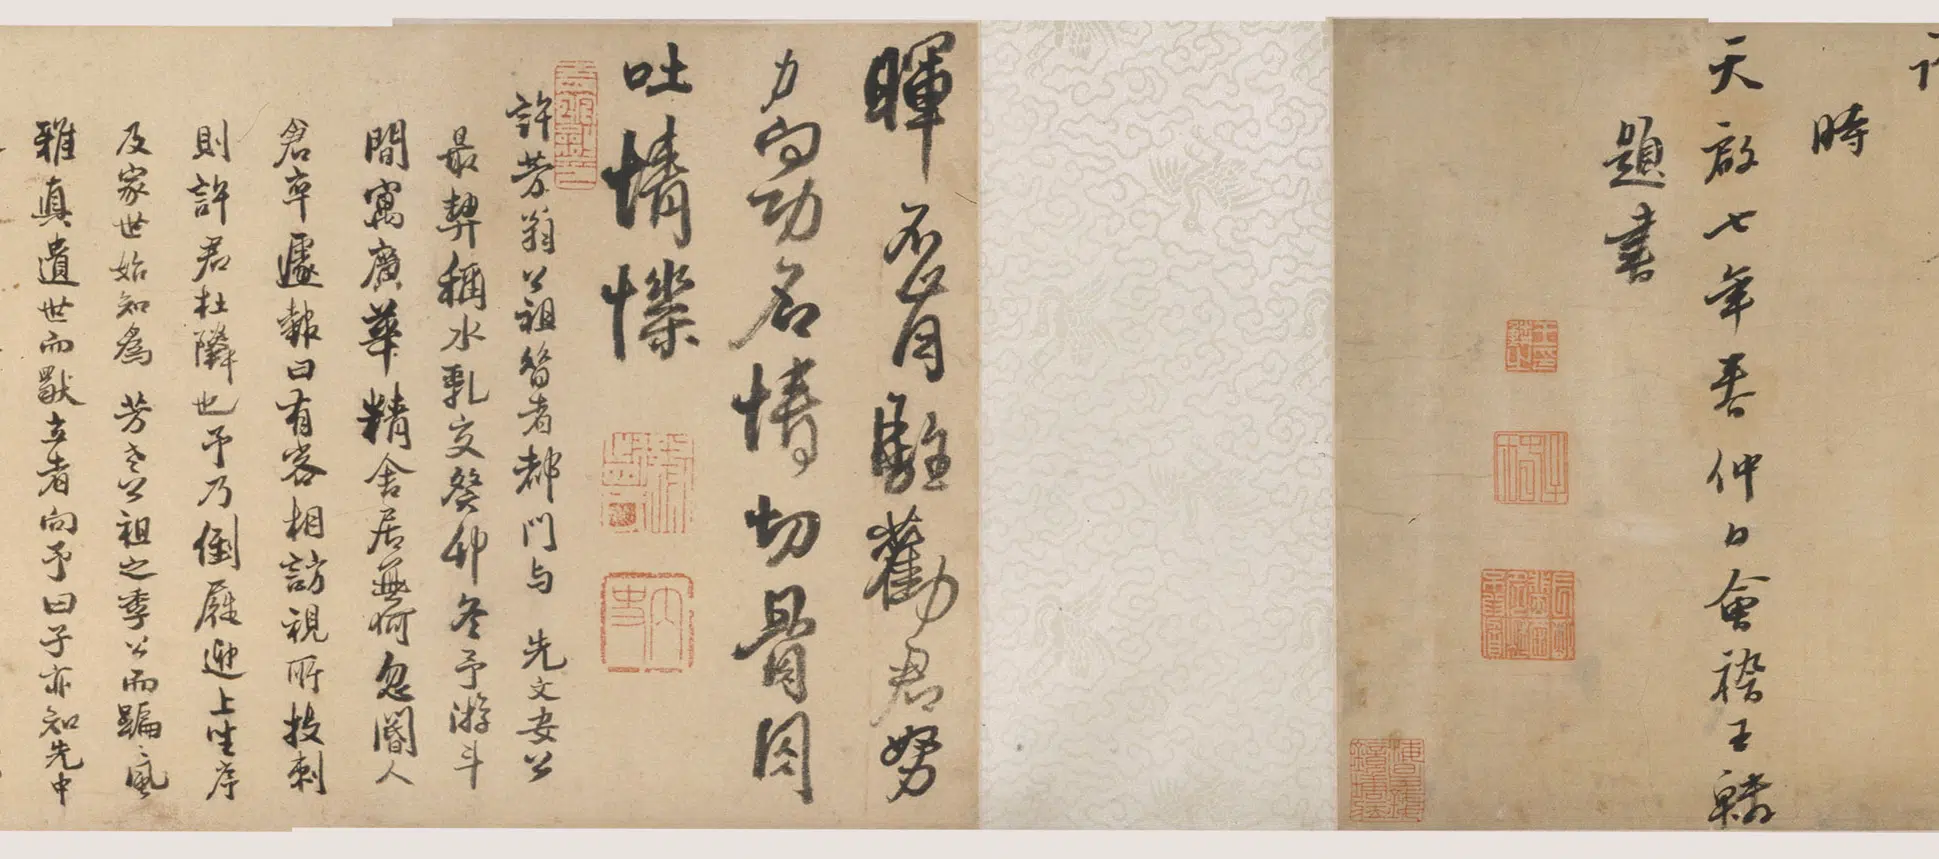 時
天啟七年春仲日會稽王
題書
暉不肯駐勸君努
力向功名情切骨因
吐情
許芳翁公祖昔者都門与 先文安公
最契稱水乳交癸卯冬予游斗
間寓廣華精舍居無何忽閽人
倉卒遽報曰有客相訪視所投刺
則許君杜隣也予乃倒屣迎上坐序
及家世始知為 芳老公祖之季公而翩〻風
雅真遺世而獨立者向予曰子亦知先中